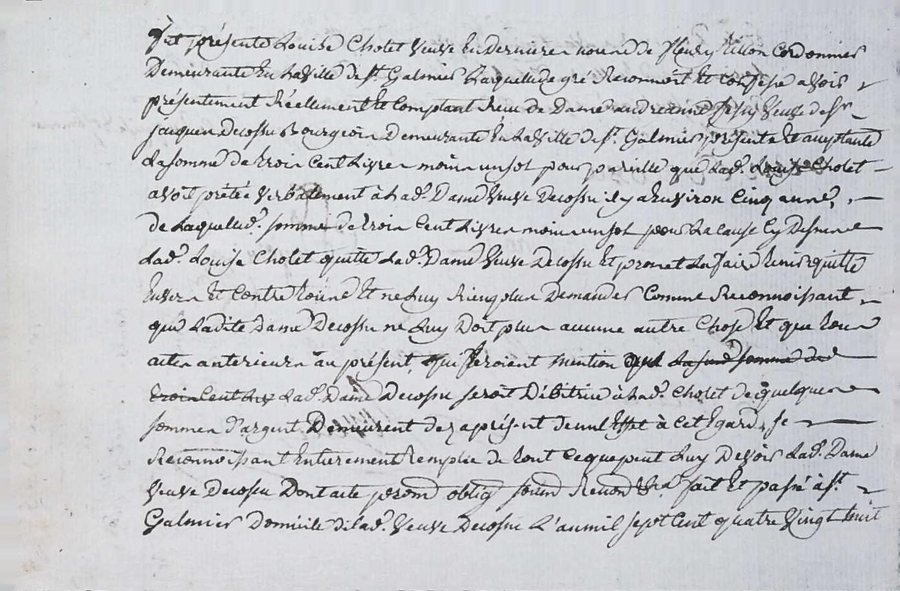 fut présente Louise Cholet Veuve En Derniere noune de fleury Cordonnier
Demeurante En la Ville de St. Galmier Laquelle de gré Reconnoit Et Confesse avoir
présentement Réellement Et Comptant Reçu de Dame andreanne Veuve de Sr.
jacques Decossu Bourgeois Demeurante En la Ville de St. Galmier présente Et acceptante
La somme de trois Cent Livres moins un sol pour pareille que Lad. Louise Cholet
avoit prétée verbalement à Lad. Dame Veuve Decossu il y a Environ Cinq années,
de Laquelle d. somme de trois Cent Livres moins un sol pour La Cause Cy Dessus
Lad. Louise Cholet quitte Lad. Dame Veuve Decossu Et promet La faire tenir quitte
Envers Et Contre tous Et ne Luy Rien plus Demander Comme Reconnoissant
que Ladite Dame Decossu ne Luy Doit plus aucune autre Chose Et que tous
actes anterieurs au présent, qui feroient mention que La sud. somme de
trois Cent Lad. Dame Decossu seroit Débitrice à Lad. Cholet de quelques
sommes D'argent Demeurent dez àprésent de nul Effet à Cet Egard, se
Reconnoissant Entierement Remplie de tout Ce que peut Luy Devoir Lad. Dame
Veuve Decossu Dont acte oblig. soum. Renon. fait Et passé à St.
Galmier Domicile de Lad. Veuve Decossu L'an mil sept Cent quatre Vingt huit